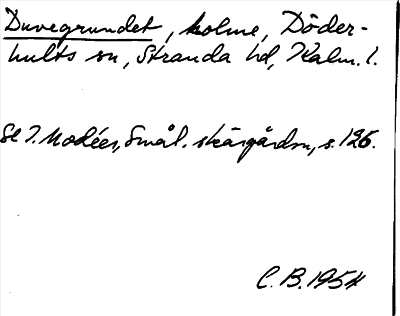 Duvegrundet, holme, Döder-
hults sn, Stranda hd, Kalm. l.
Se I. Modéer, Smål. skärgårdsn, s. 126.
C. B. 1954